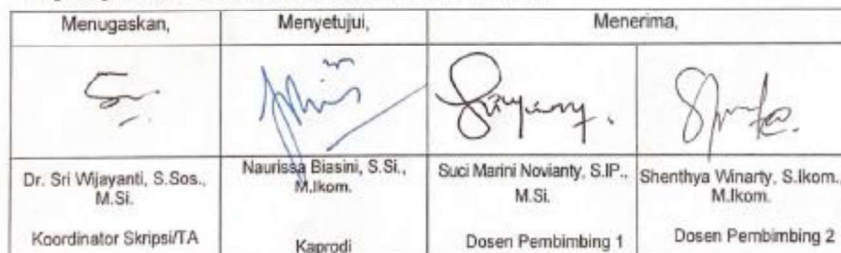 Menugaskan,
Menyetujui,
Menerima,
Dr. Sri Wijayanti, S.Sos.,
M.Si.
Koordinator Skripsi/TA
Naurissa Biasini, S.Si.,
M.Ikom.
Kaprodi
Suci Marini Novianty, S.IP.,
M.Si.
Dosen Pembimbing 1
Shenthya Winarty, S.Ikom.,
M.Ikom.
Dosen Pembimbing 2